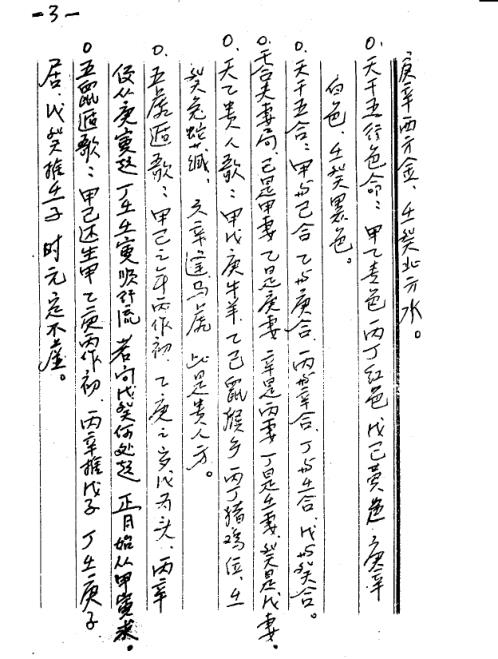 -3-
庚辛西方金、壬癸北方水。
0.天干五行色命：甲乙青色 丙丁红色 戊己黄色 庚辛
白色、壬癸黑色。
0.天干五合：甲与己合 乙与庚合、丙与辛合、丁与壬合、戊与癸合。
0.天合夫妻局、己是甲妻 乙是庚妻 辛是丙妻 丁是壬妻、癸是戊妻。
0.天乙贵人歌：甲戊庚牛羊、乙己鼠猴乡 丙丁猪鸡位、壬
癸兔蛇藏、六辛逢马虎 此是贵人方。
0.五虎遁歌：甲己之年丙作初、乙庚之岁戊为头、丙辛
便从庚寅起 丁壬壬寅顺行流 若问戊癸何处起 正月始从甲寅求。
0.五鼠遁歌：甲己还生甲 乙庚丙作初、丙辛推戊子 丁壬庚子
居、戊癸推壬子 时元定不虚。